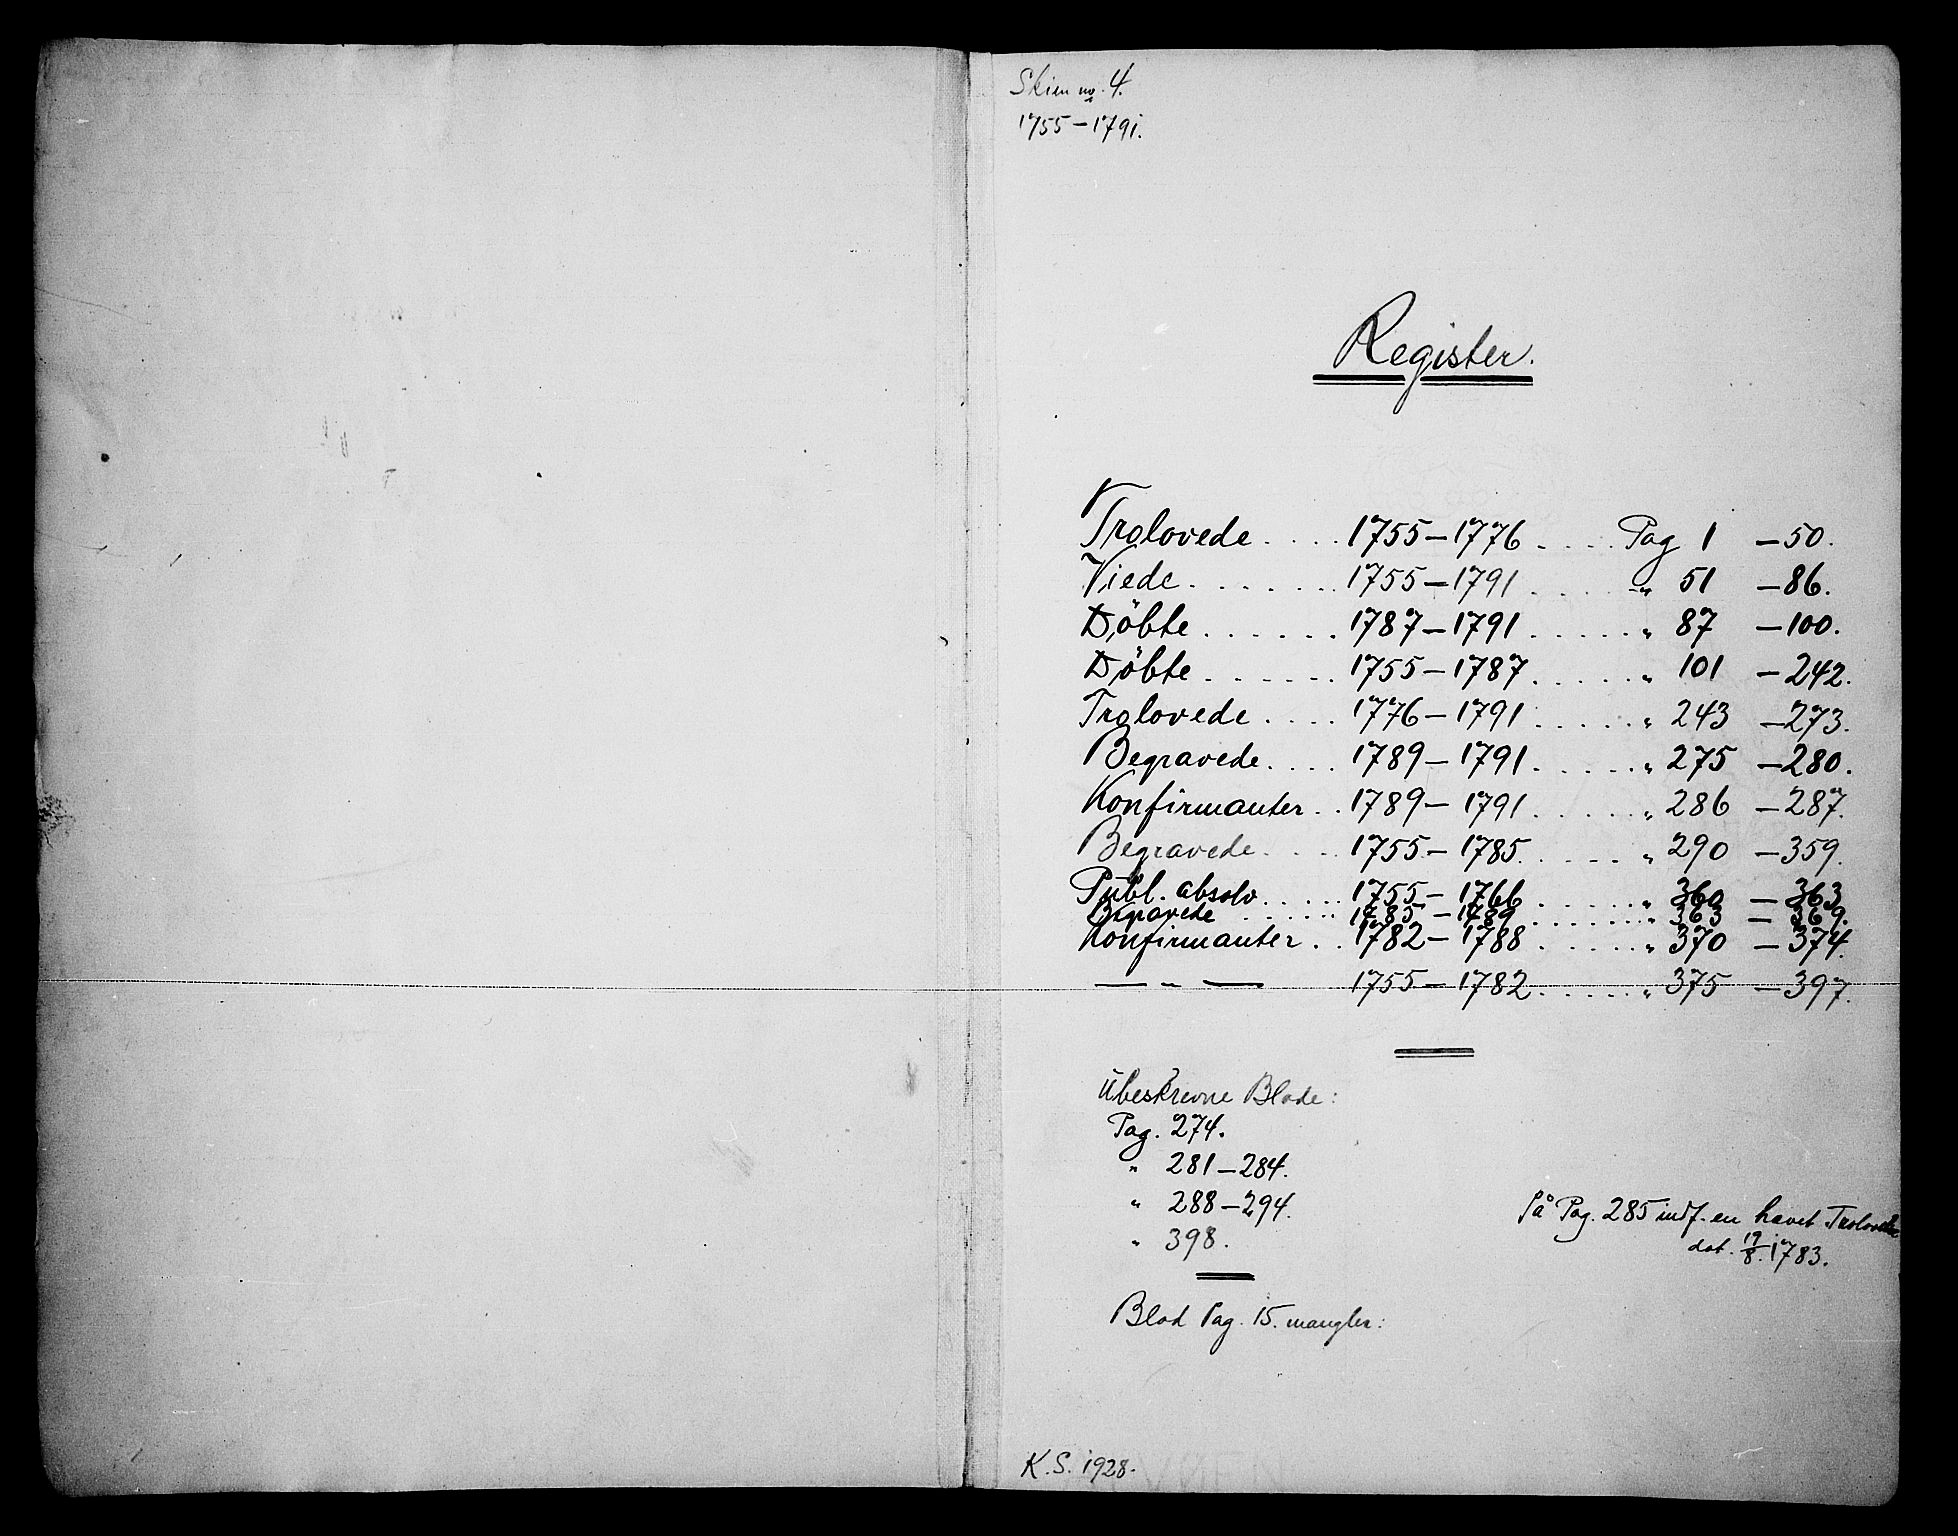 Skien no. 4.
1755–1791.
Register.
Trolovede .... 1755–1776 .... Pag 1 –50.
Viede ...... 1755–1791 .... " 51 –86.
Döbte ...... 1787–1791 .... " 87 –100.
Döbte ...... 1755–1787 .... " 101 –242.
Trolovede .... 1776–1791 .... " 243 –273.
Begravede .... 1789–1791 .... " 275 –280.
Konfirmanter .. 1789–1791 .... " 286 –287.
Begravede .... 1755–1785 .... " 290 –359.
Publ. absolv. .... 1755–1766 .... " 360 –363
Begravede .... 1785–1789 .... " 363 –369.
Konfirmanter .. 1782–1788 .... " 370 –374.
— " — 1755–1782 .... " 375 –397.
Ubeskrevne Blade:
Pag. 274.
" 281–284.
" 288–294.
" 398.
På Pag. 285 indf. en hævet
dat. 19/8. 1783.
Blad Pag. 15. mangler:
K.S. 1928.